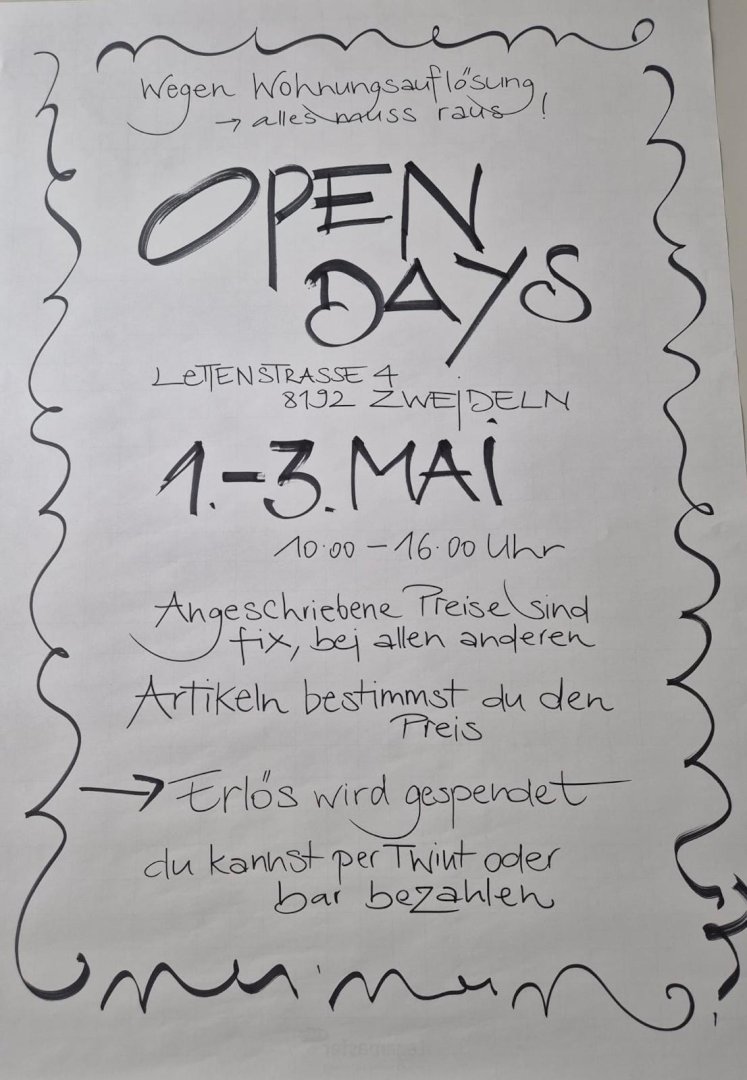 Wegen Wohnungsauflösung
→ alles muss raus!
OPEN
DAYS
LETTENSTRASSE 4
8192 ZWEIDELN
1.-3. MAI
10.00 - 16.00 Uhr
Angeschriebene Preise sind
fix, bei allen anderen
Artikeln bestimmst du den
Preis
→ Erlös wird gespendet
du kannst per Twint oder
bar bezahlen